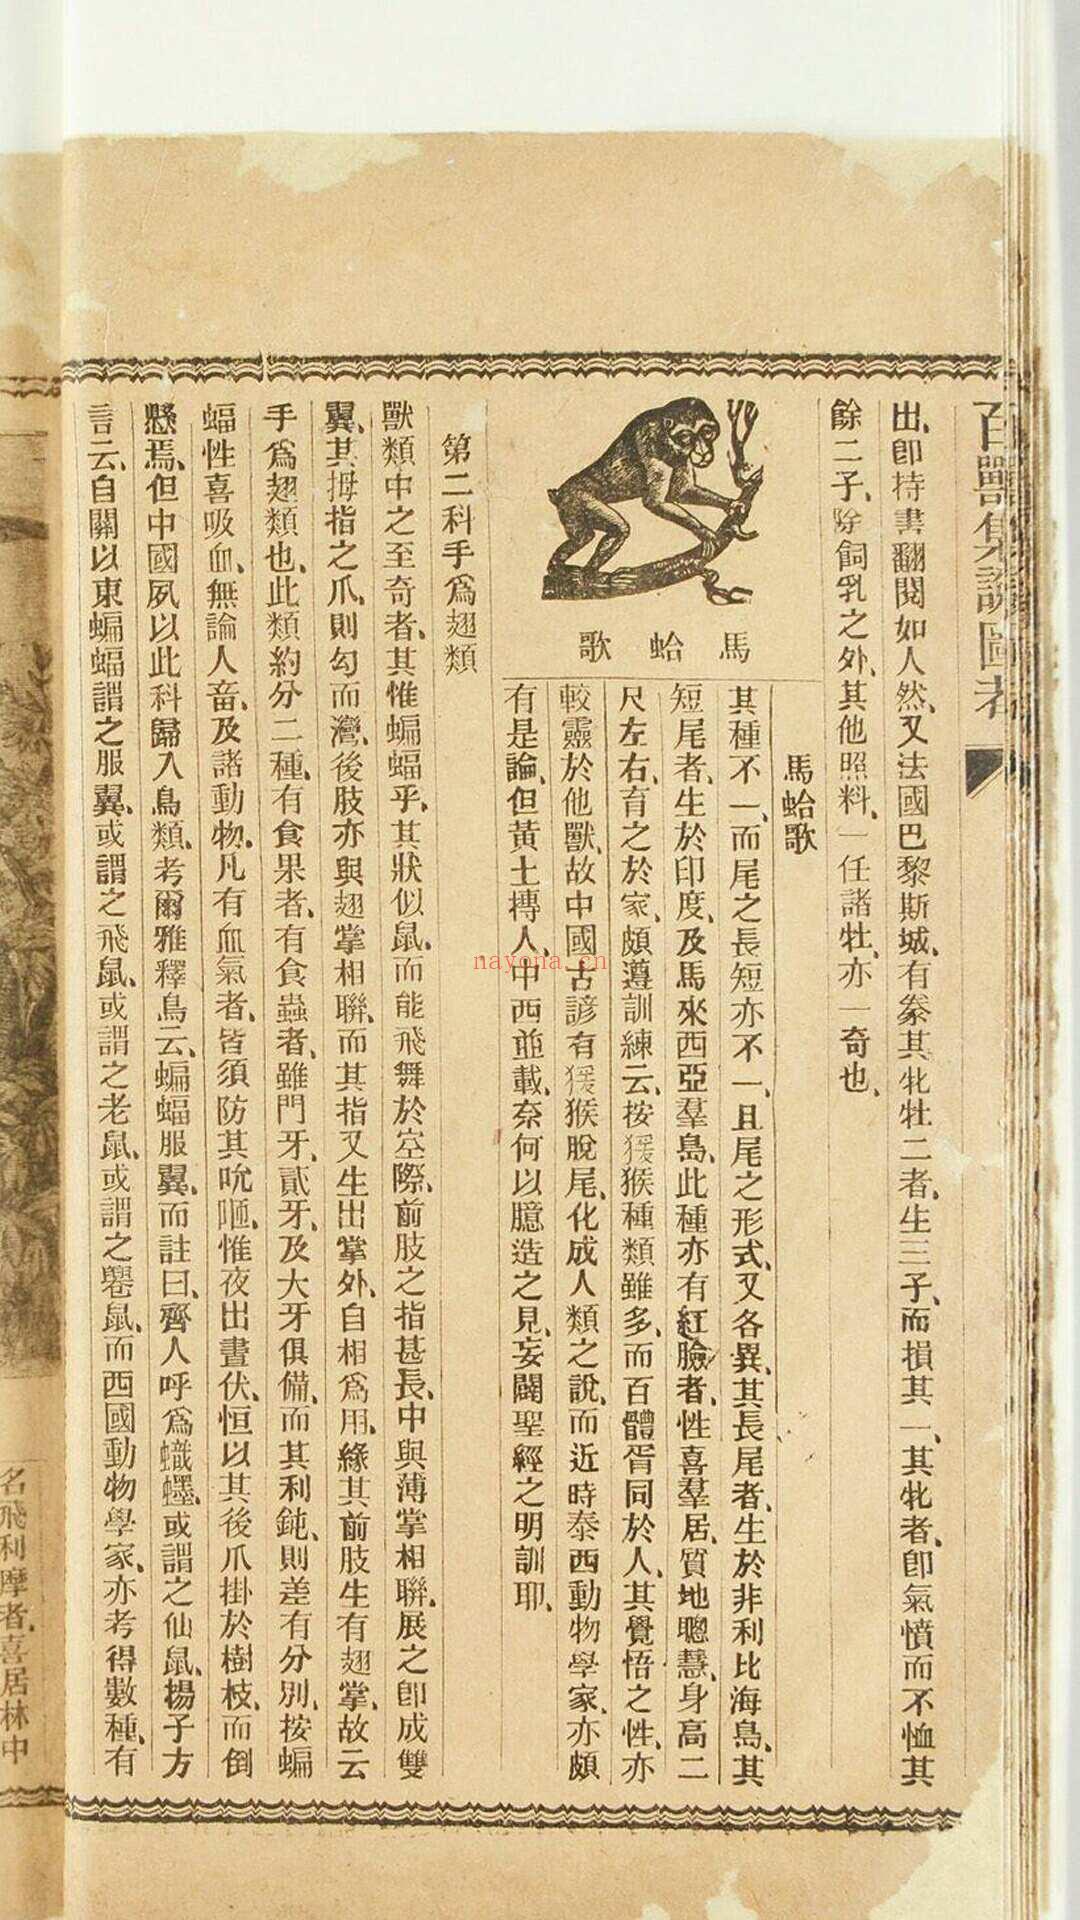 百獸集說圖考
出、卽持書翻閱如人然、又法國巴黎斯城、有豢其牝牡二者、生三子、而損其一、其牝者、卽氣憤而不恤其
餘二子、除飼乳之外、其他照料、一任諸牡、亦一奇也、
馬蛤歌
馬蛤歌
其種不一、而尾之長短亦不一、且尾之形式、又各異、其長尾者、生於非利比海島、其
短尾者、生於印度、及馬來西亞羣島、此種亦有紅臉者、性喜羣居、質地聰慧、身高二
尺左右、育之於家、頗遵訓練云、按猨猴種類雖多、而百體胥同於人、其覺悟之性、亦
較靈於他獸、故中國古諺有猨猴脫尾、化成人類之說、而近時泰西動物學家、亦頗
有是論、但黃土摶人、中西並載、奈何以臆造之見、妄闢聖經之明訓耶、
第二科手爲翅類
獸類中之至奇者、其惟蝙蝠乎、其狀似鼠、而能飛舞於空際、前肢之指甚長、中與薄掌相聯、展之卽成雙
翼、其拇指之爪、則勾而灣、後肢亦與翅掌相聯、而其指又生出掌外、自相爲用、緣其前肢生有翅掌、故云
手爲翅類也、此類約分二種、有食果者、有食蟲者、雖門牙、貳牙、及大牙俱備、而其利鈍、則差有分別、按蝙
蝠性喜吸血、無論人畜、及諸動物、凡有血氣者、皆須防其吮咂、惟夜出晝伏、恒以其後爪掛於樹枝、而倒
懸焉、但中國夙以此科歸入鳥類、考爾雅釋鳥云、蝙蝠服翼、而註曰、齊人呼爲蟙䘃、或謂之仙鼠、揚子方
言云、自關以東蝙蝠謂之服翼、或謂之飛鼠、或謂之老鼠、或謂之䙴鼠、而西國動物學家、亦考得數種、有
名飛利摩者、喜居林中
nayona.cn